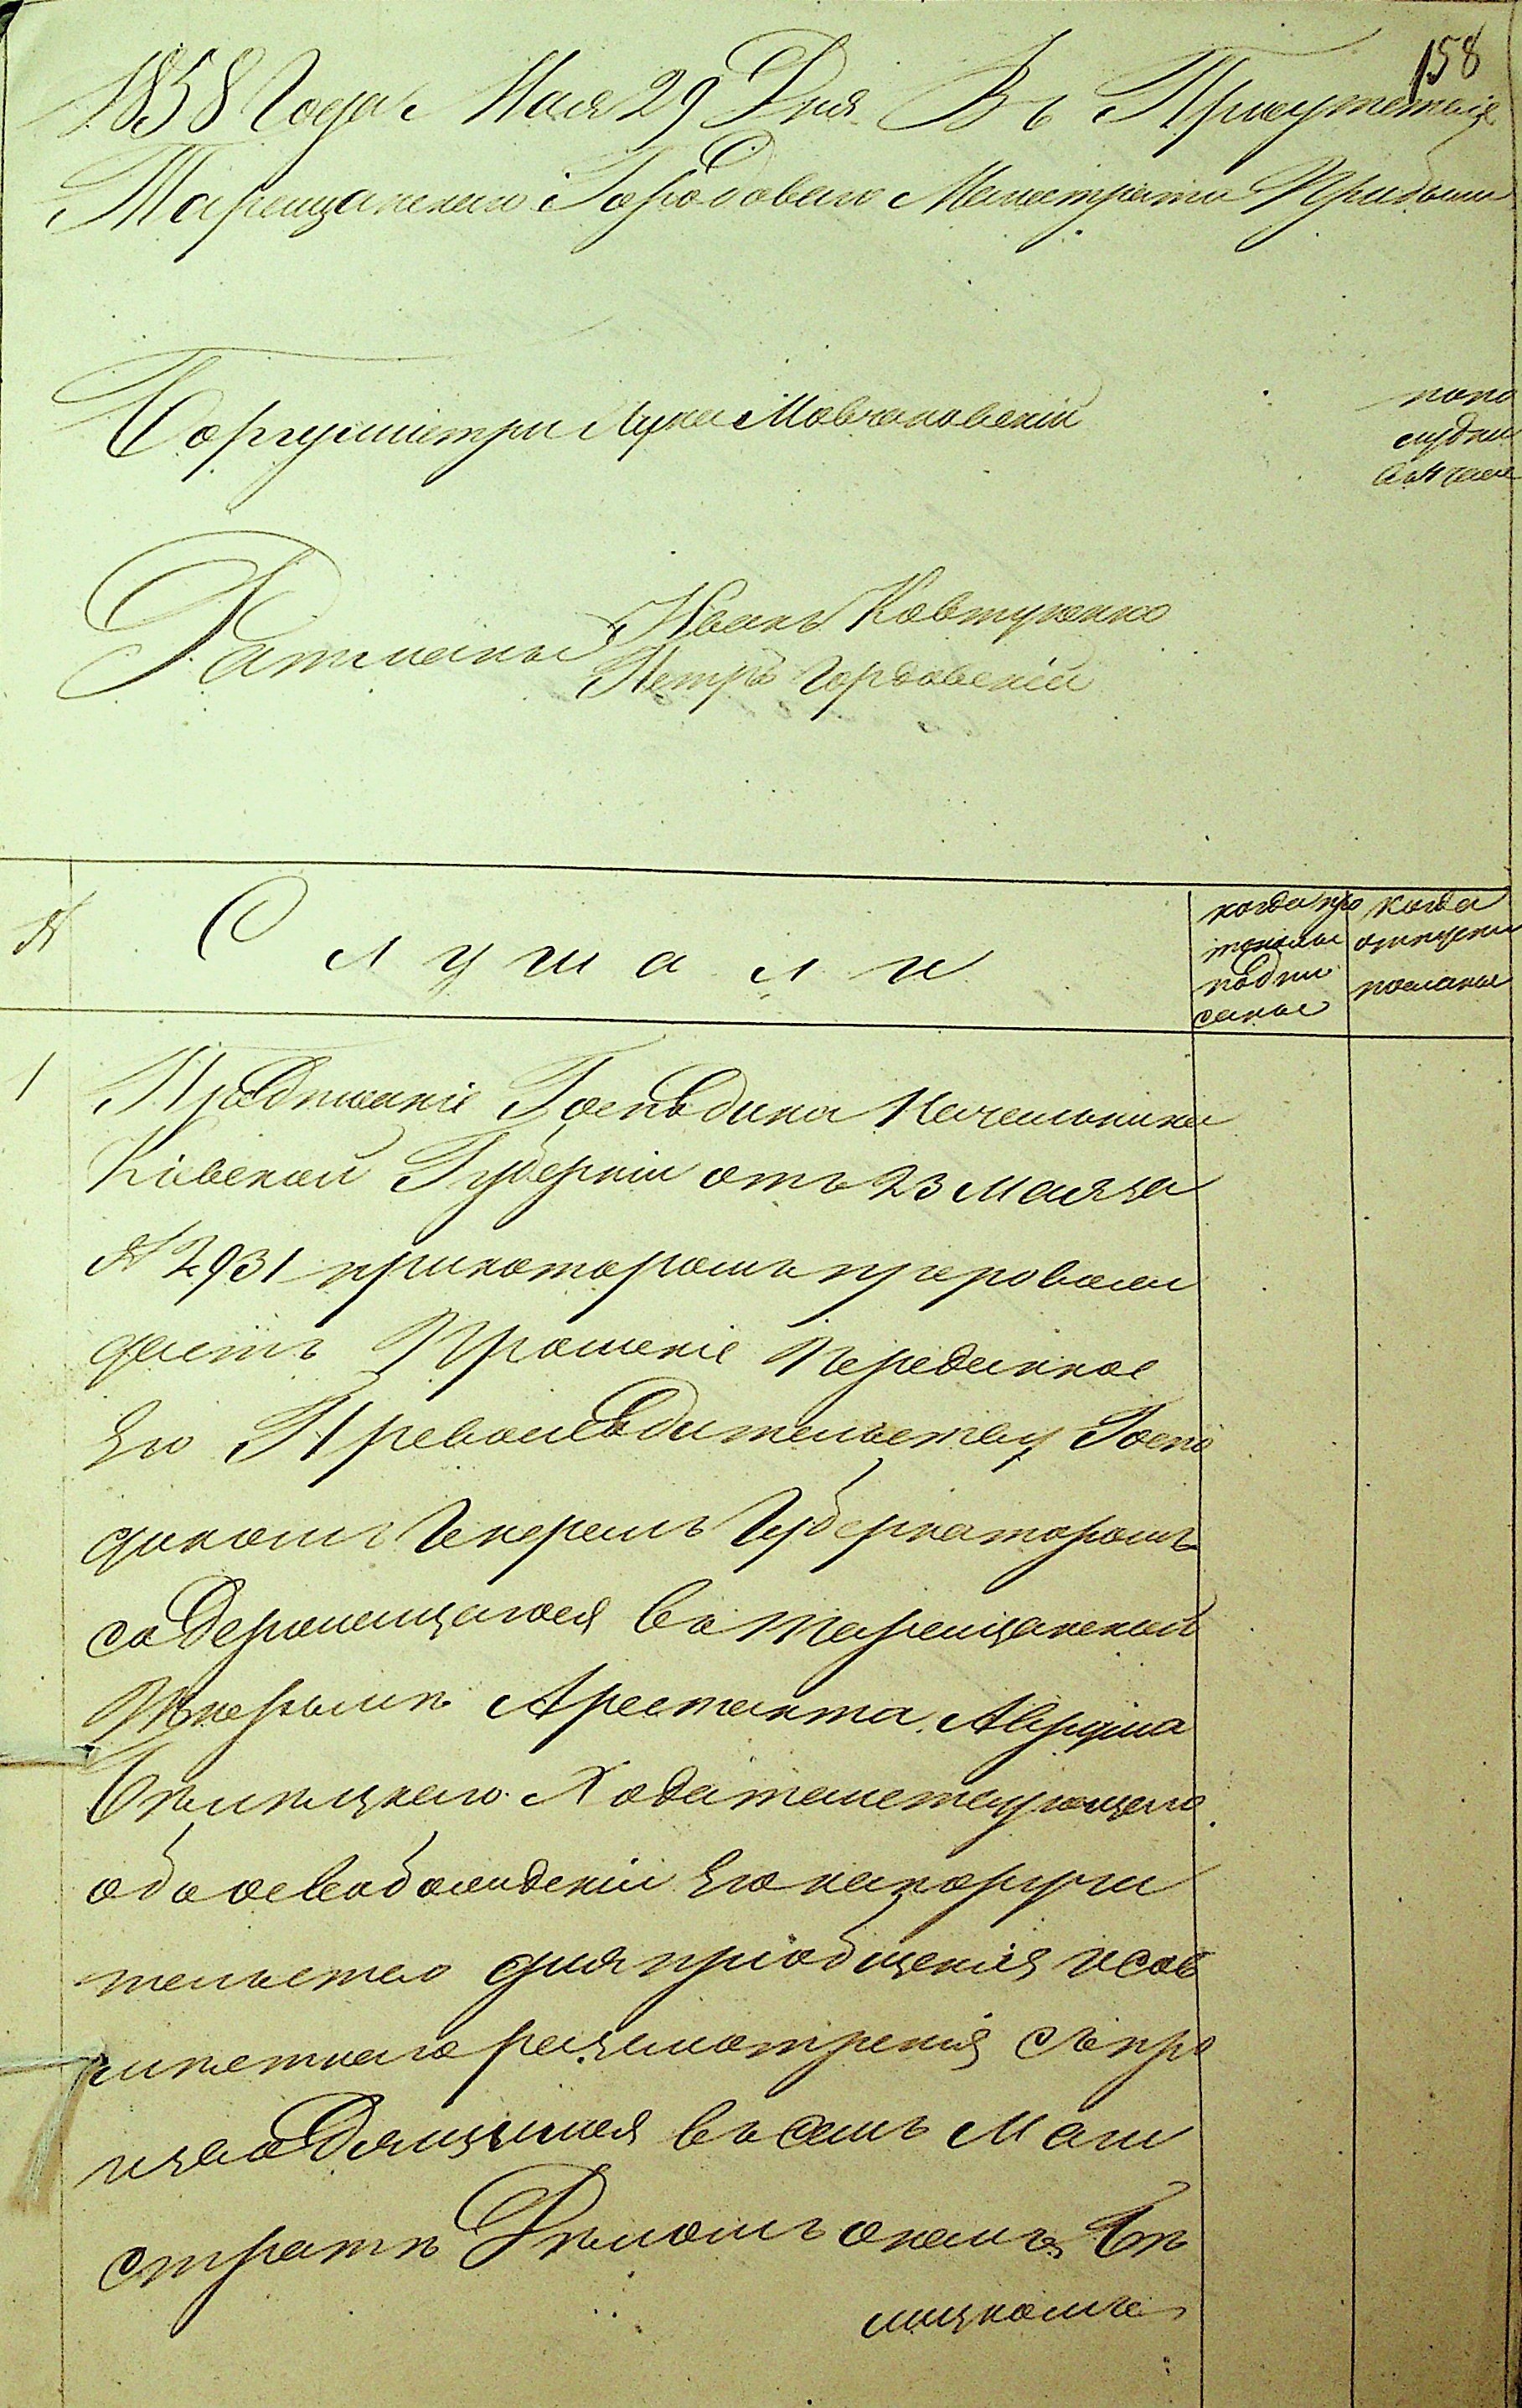 158
1858 Года Мая 29 Дня Въ Присутствіе
Таращанскаго Городоваго Магистрата Прибыли
Боргумистръ Лука Мовчановскій
попо
лудни
въ часа
Ратманы Иванъ Ковтуненко
Петръ Гордовскій
№ Слушали
когда про
токолы
подпи
саны
когда
отпуски
посланы
1 Предписаніе Господина Начальника
Кіевской Губерніи отъ 23 Мая за
№ 2931 прикоторомъ препровож
даетъ Прошеніе Переданное
Его Превосходительству Госпо
диномъ Генералъ Губернаторомъ
содержащагося въ Таращанской
Тюрьмѣ Арестанта
Бѣлицкаго Ходатайствующаго
объ освобожденіи Его на поручи
тельство для пріобщенія и сов
мѣстнаго разсмотренія съ про
изводящимся въ семъ Маги
стратѣ Дѣломъ о немъ Бѣ
лицкомъ